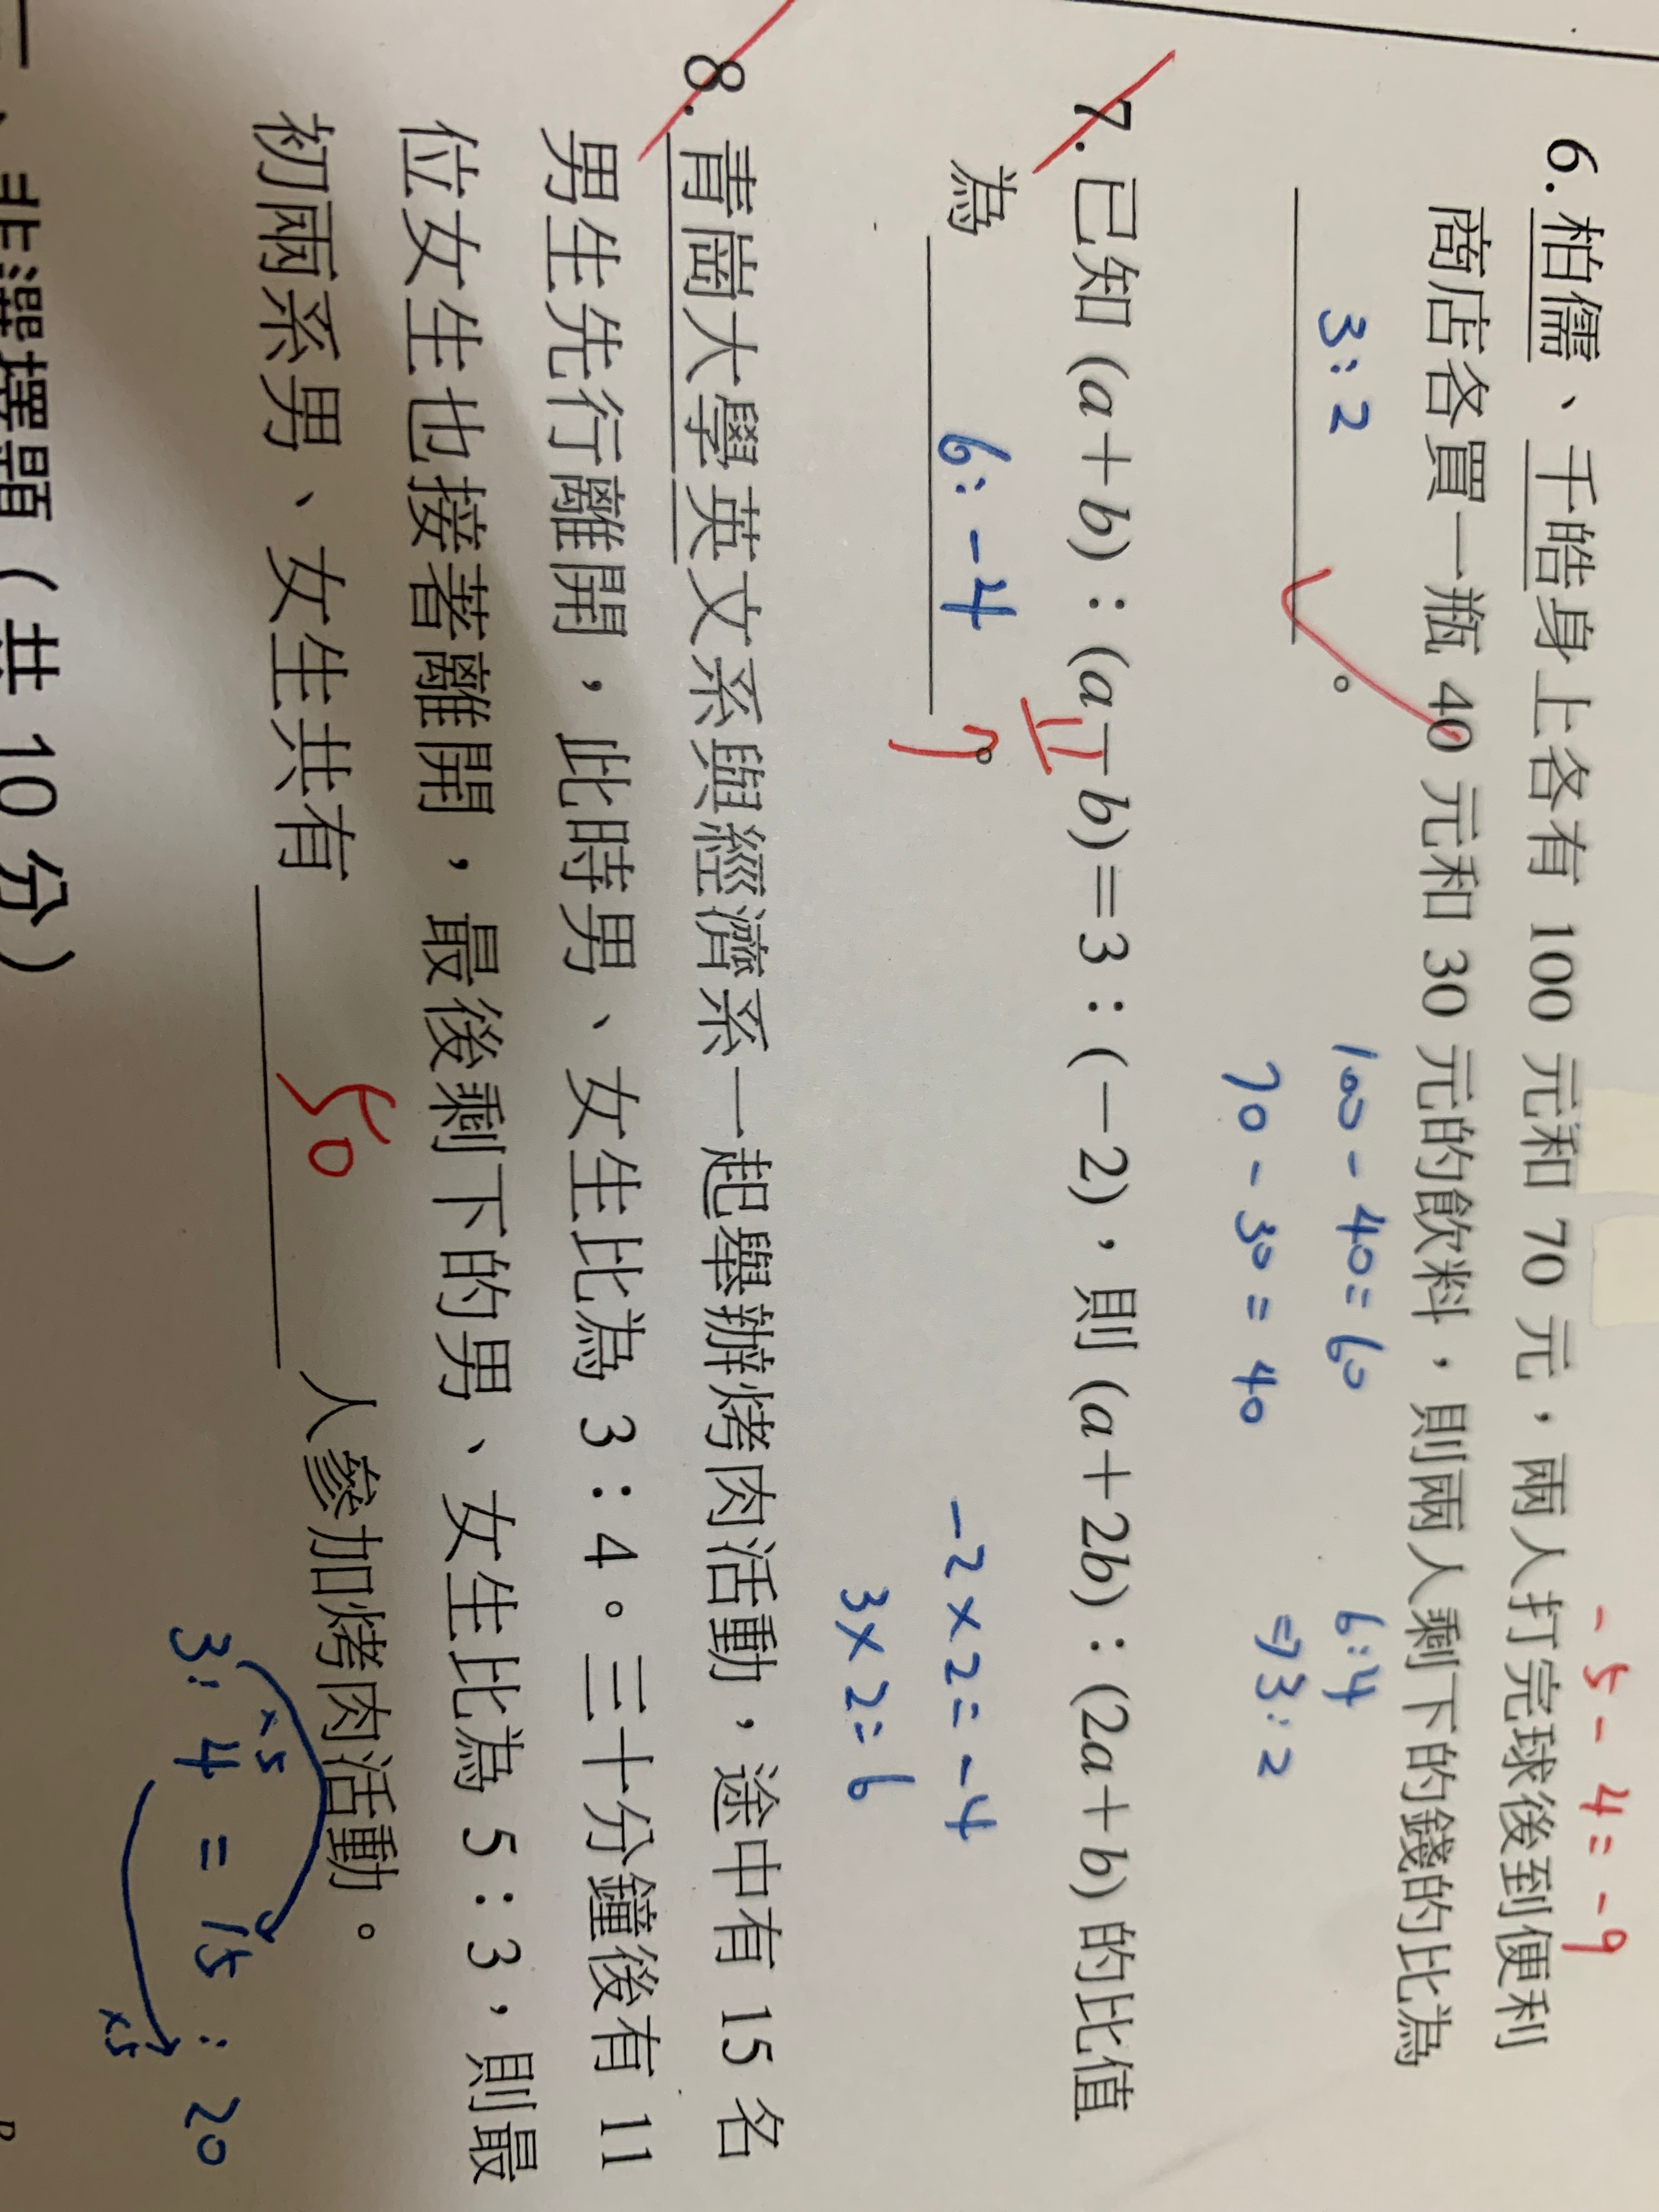 -5-4=-9
6.柏儒、千皓身上各有 100 元和 70 元，兩人打完球後到便利
商店各買一瓶 40 元和 30 元的飲料，則兩人剩下的錢的比為
3:2 。
100-40=60 6:4
70-30=40 ⇒3:2
7.已知(a+b):(a-b)=3:(-2)，則(a+2b):(2a+b)的比值
為 6:-4 。
-2×2=-4
3×2=6
8.青崗大學英文系與經濟系一起舉辦烤肉活動，途中有 15 名
男生先行離開，此時男、女生比為 3:4。三十分鐘後有 11
位女生也接著離開，最後剩下的男、女生比為 5:3，則最
初兩系男、女生共有 50 人參加烤肉活動。
×5
3:4=15:20
×5
二、非選擇題（共 10 分）